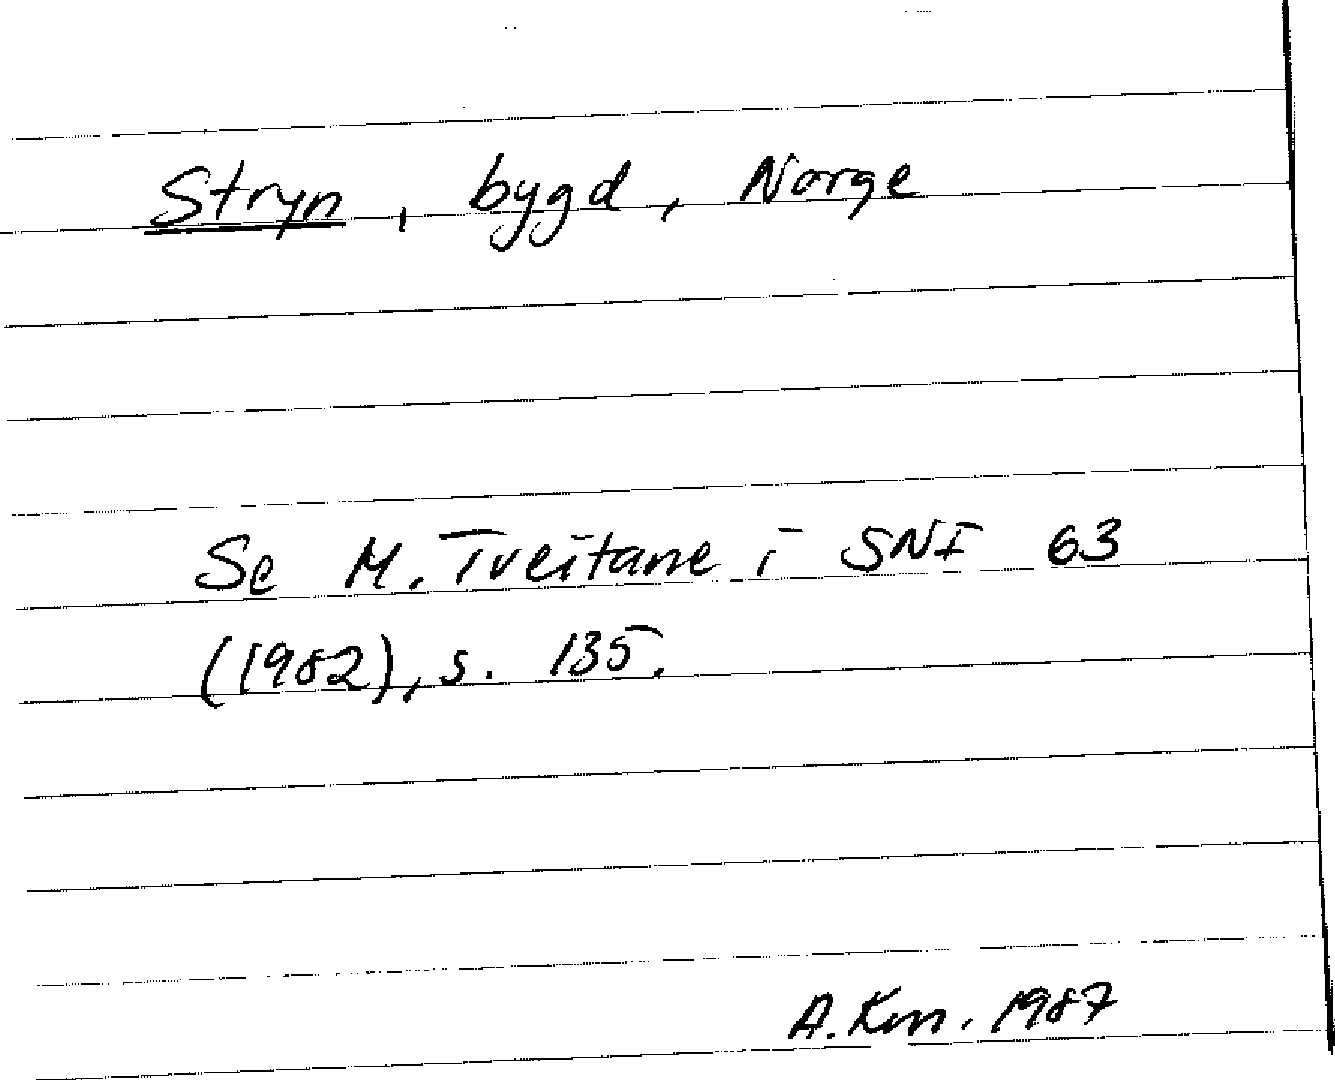 Stryn, bygd, Norge
Se M. Tveitane i SNF 63
(1982), s. 135.
A. Km. 1987